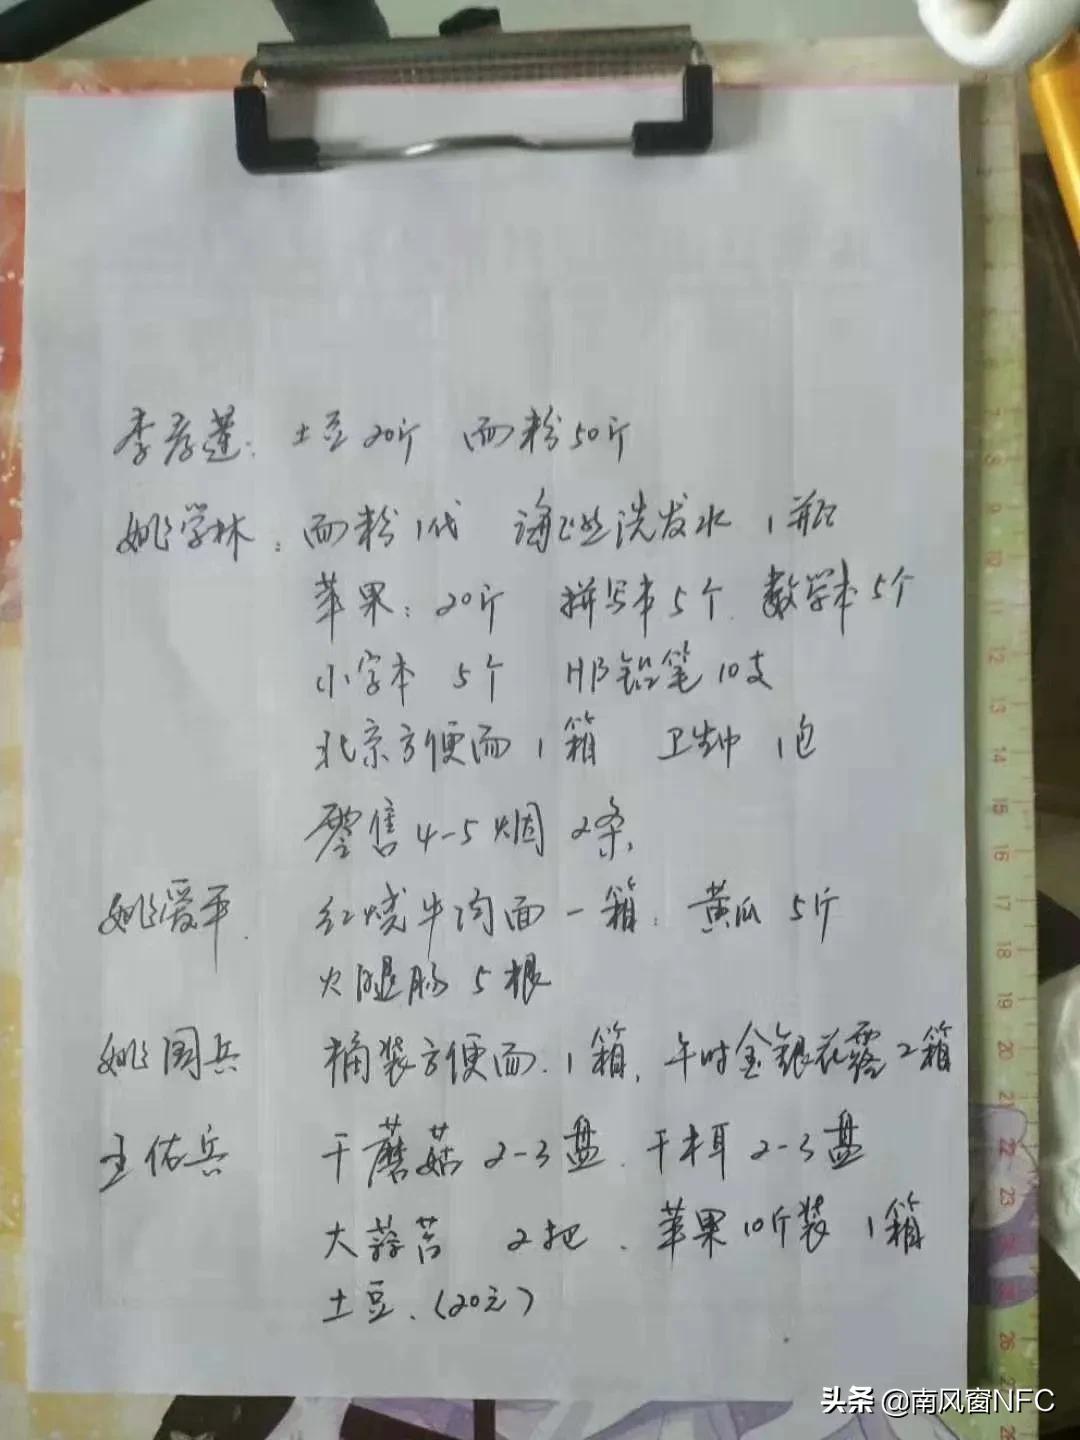 李彦莲: 土豆20斤 面粉50斤
姚学林: 面粉1代 海飞丝洗发水 1瓶
苹果: 20斤 拼写本5个. 数学本5个
小字本 5个 HB铅笔10支
北京方便面1箱 卫生巾 1包
零售4-5烟 2条,
姚爱平. 红烧牛肉面一箱. 黄瓜 5斤
火腿肠 5根
姚国兵 桶装方便面. 1箱, 午时金银花露2箱
王佑兵 干蘑菇2-3盘. 干木耳2-3盘
大蒜苔 2把. 苹果10斤装 1箱
土豆. (20元)
7
8
9
10
11
12
13
14
15
16
17
18
19
20
21
22
23
26
头条 @南风窗NFC